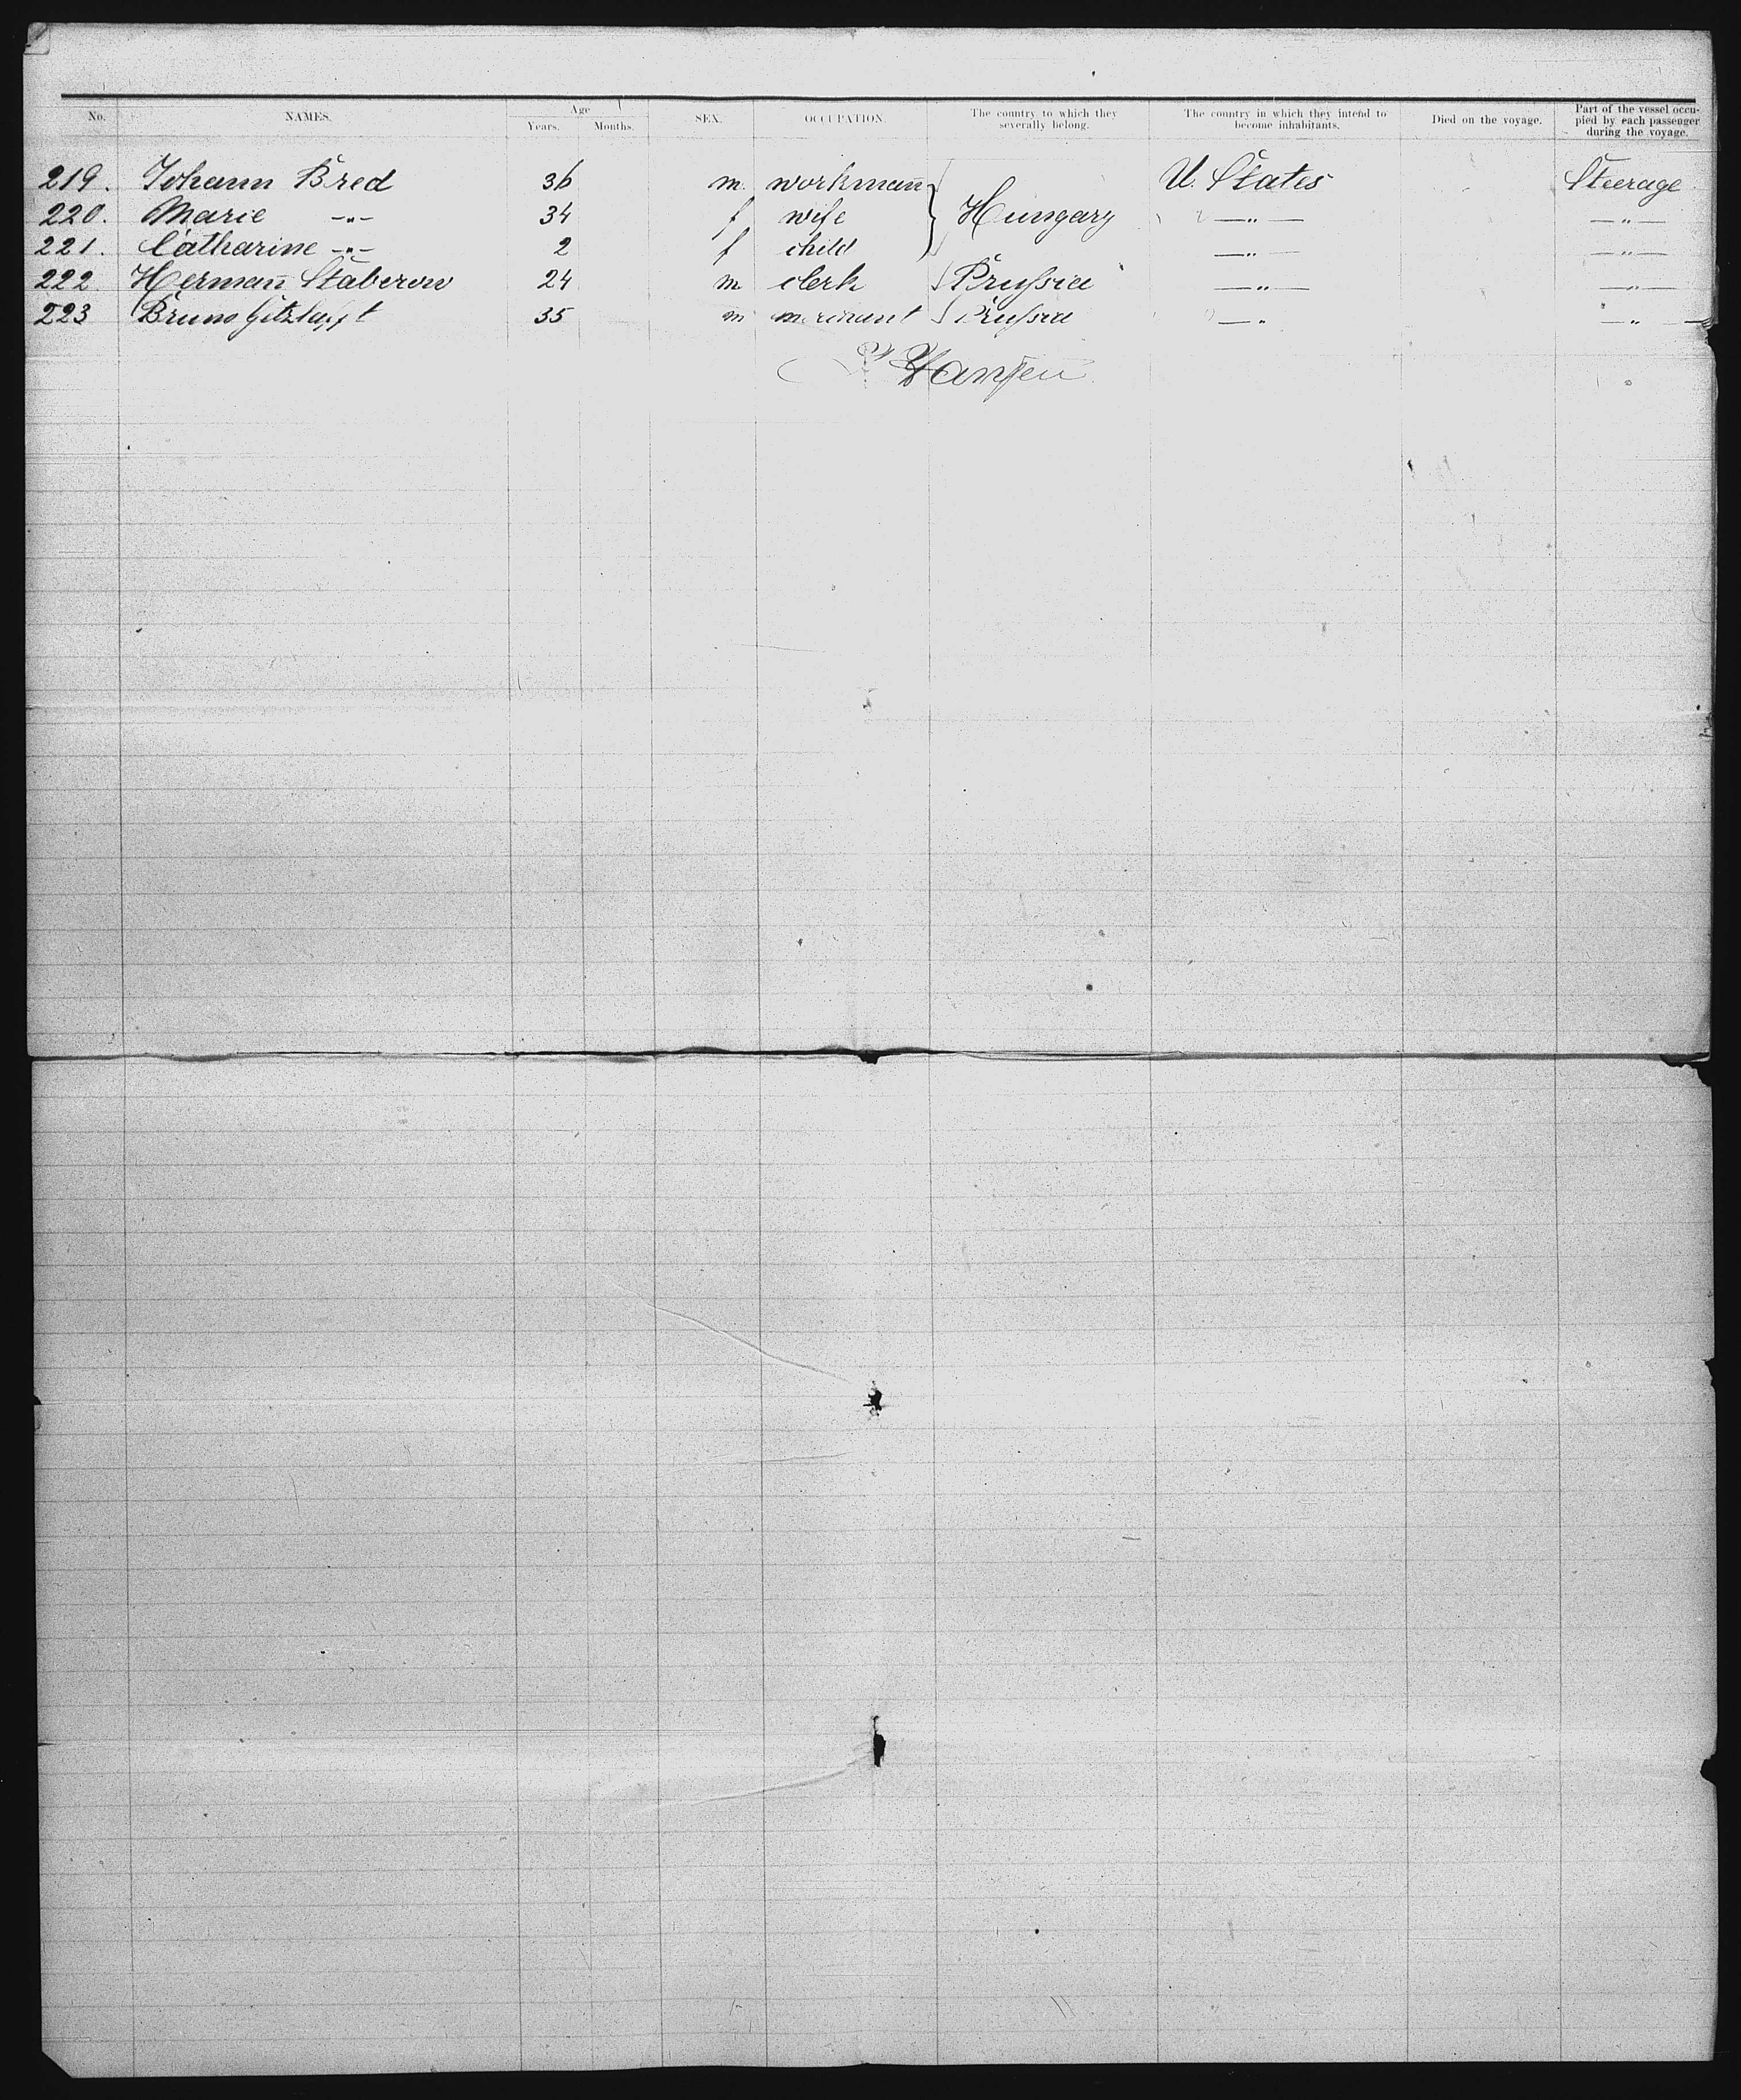 No. NAMES. Age Years. Months. SEX. OCCUPATION. The country to which they severally belong. The country in which they intend to become inhabitants. Died on the voyage. Part of the vessel occupied by each passenger during the voyage.
219. Johann Bred 36 m. workmañ U. States Steerage
220. Marie -"- 34 f wife Hungary —"— —"—
221. Catharine -"- 2 f child —"— —"—
222 Hermañ Staberow 24 m clerk Prussia —"— —"—
223 Bruno 35 m merchant Prussia —" —"—
Hansen